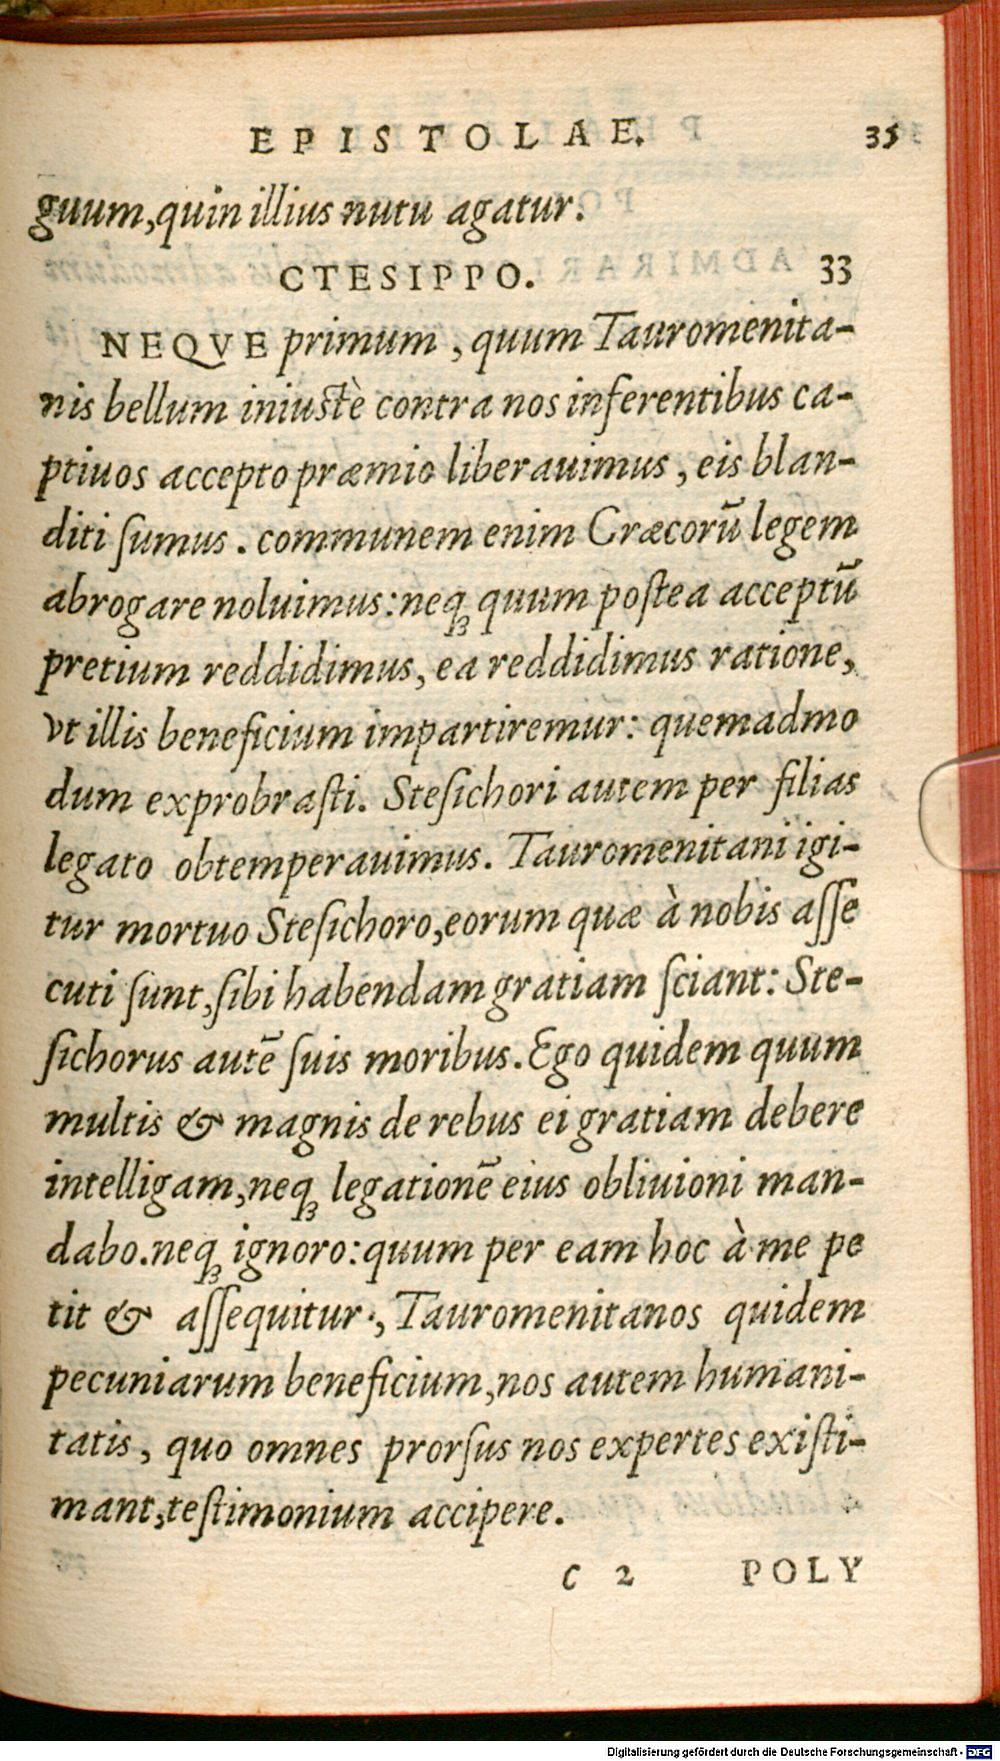 EPISTOLAE. 35
guum, quin illius nutu agatur.
CTESIPPO. 33
NEQVE primum, quum Tauromenita-
nis bellum iniustè contra nos inferentibus ca-
ptiuos accepto præmio liberauimus, eis blan-
diti ſumus. communem enim Græcorū legem
abrogare noluimus: neqꝫ quum poſtea acceptū
pretium reddidimus, ea reddidimus ratione,
vt illis beneficium impartiremur: quemadmo
dum exprobraſti. Steſichori autem per filias
legato obtemperauimus. Tauromenitani igi-
tur mortuo Steſichoro, eorum quæ à nobis aſſe
cuti ſunt, ſibi habendam gratiam ſciant: Ste-
ſichorus autē ſuis moribus. Ego quidem quum
multis & magnis de rebus ei gratiam debere
intelligam, neqꝫ legationē eius obliuioni man-
dabo. neqꝫ ignoro: quum per eam hoc à me pe
tit & aſſequitur, Tauromenitanos quidem
pecuniarum beneficium, nos autem humani-
tatis, quo omnes prorſus nos expertes exiſti-
mant, teſtimonium accipere.
C 2 POLY
Digitalisierung gefördert durch die Deutsche Forschungsgemeinschaft - DFG